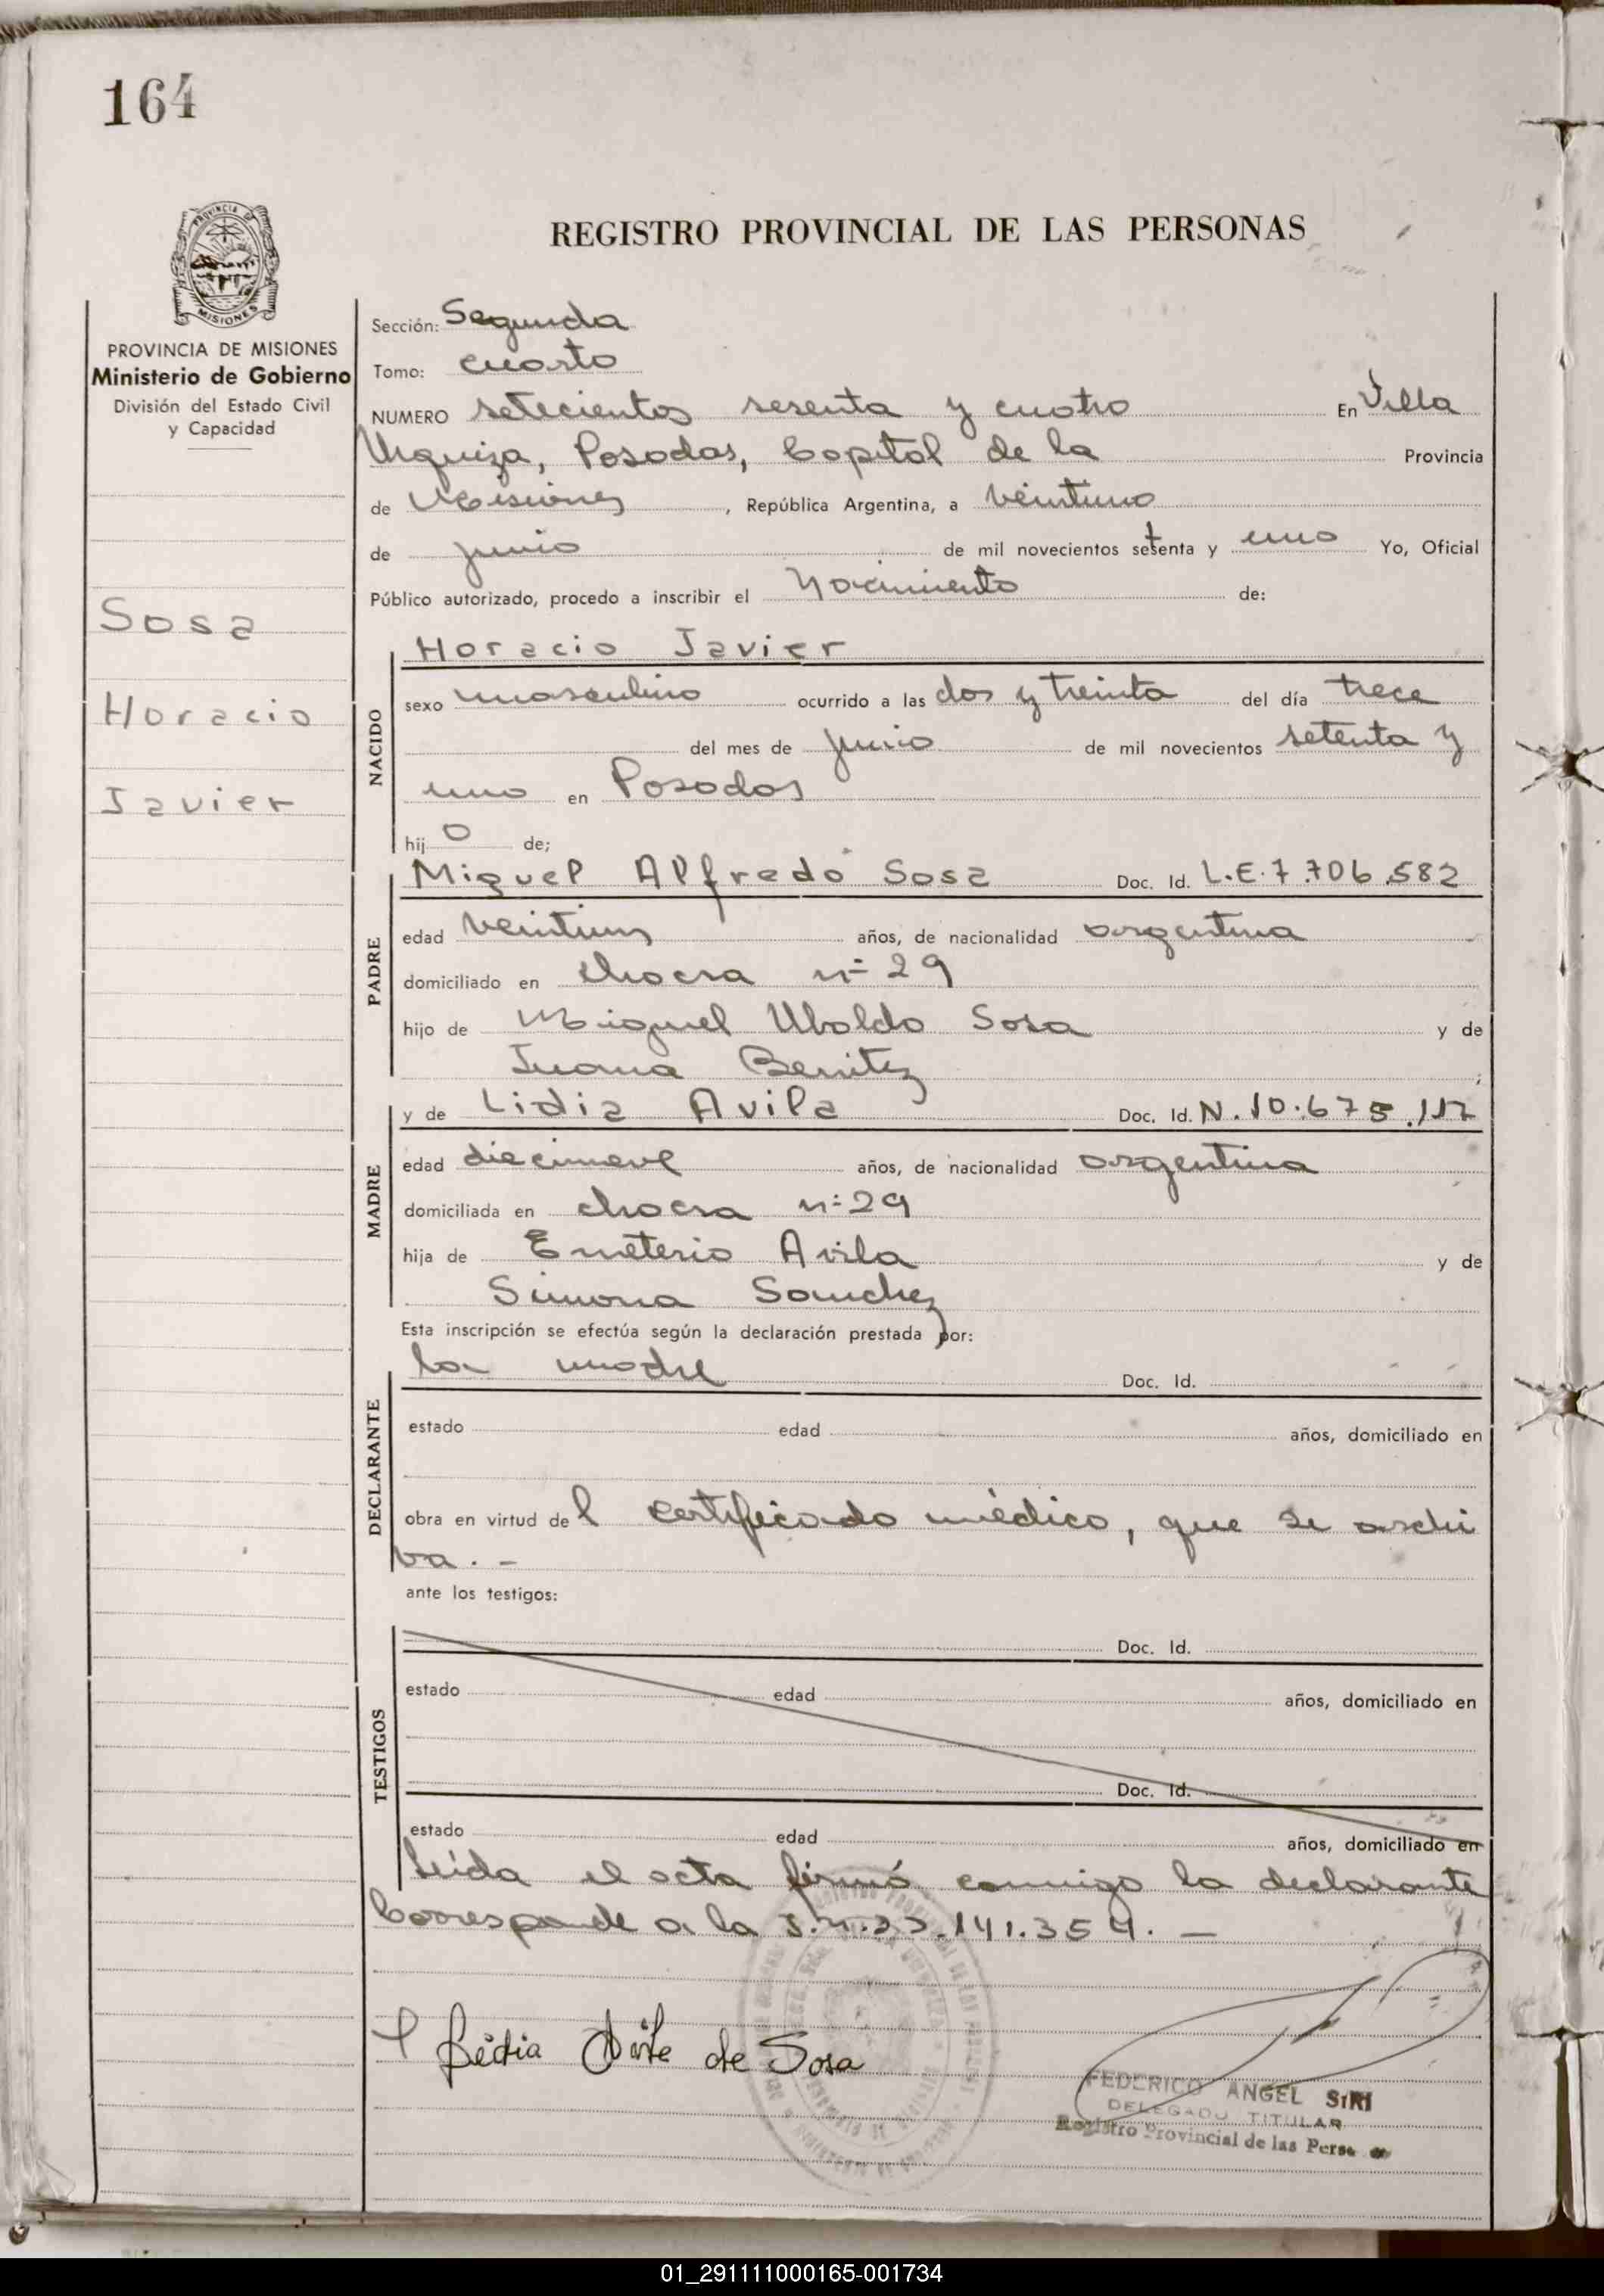 164
REGISTRO PROVINCIAL DE LAS PERSONAS
PROVINCIA DE
MISIONES
PROVINCIA DE MISIONES
Ministerio de Gobierno
División del Estado Civil
y Capacidad
Sosa
Horacio
Javier
Sección: Segunda
Tomo: cuarto
NUMERO setecientos sesenta y cuatro En Villa
Urquiza, Posadas, Capital de la Provincia
de Misiones, República Argentina, a veintiuno
de junio de mil novecientos setenta y uno Yo, Oficial
Público autorizado, procedo a inscribir el Nacimiento de:
Horacio Javier
NACIDO
sexo masculino ocurrido a las dos y treinta del día trece
del mes de junio de mil novecientos setenta y
uno en Posadas
hijo de;
PADRE
Miguel Alfredo Sosa Doc. Id. L.E.7.706.582
edad veintiun años, de nacionalidad argentina
domiciliado en chacra nº 29
hijo de Miguel Ubaldo Sosa y de
Juana Benitez;
MADRE
y de Lidia Avila Doc. Id. N.10.675.117
edad diecinueve años, de nacionalidad argentina
domiciliada en chacra nº 29
hija de Emeterio Avila y de
Simona Sanchez
Esta inscripción se efectúa según la declaración prestada por:
DECLARANTE
la madre Doc. Id.
estado edad años, domiciliado en
obra en virtud del certificado médico, que se archi
va. -
ante los testigos:
TESTIGOS
Doc. Id.
estado edad años, domiciliado en
Doc. Id.
estado edad años, domiciliado en
Leída el acta firmó conmigo la declarante
Corresponde a la
Lidia de Sosa
FEDERICO ANGEL SIRI
DELEGADO TITULAR
Registro Provincial de las Perso
01_291111000165-001734